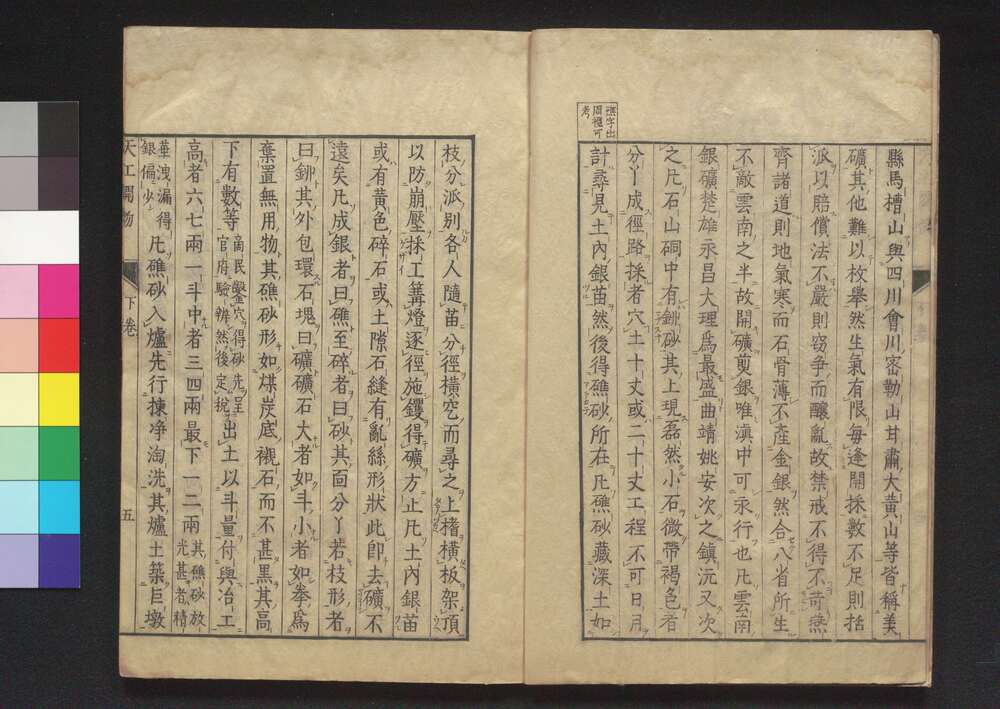 縣馬槽山與四川會川密勒山甘肅大黃山等皆稱美
礦其他難以枚舉然生氣有限每逢開採數不足則括
派以賠償法不嚴則窃爭而釀亂故禁戒不得不苛燕
齊諸道則地氣寒而石骨薄不產金銀然合八省所生
不敵雲南之半故開礦煎銀唯滇中可永行也凡雲南
銀礦楚雄永昌大理爲最盛曲靖姚安次之鎮沅又次
之凡石山硐中有鉚砂其上現磊然小石微帶褐色者
分丫成徑路採者穴土十丈或二十丈工程不可日月
計尋見土內銀苗然後得礁砂所在凡礁砂藏深土如
枝分派別各人隨苗分徑橫穵而尋之上榰橫板架頂
以防崩壓採工篝燈逐徑施钁得礦方止凡土內銀苗
或有黃色碎石或土隙石縫有亂絲形狀此卽去礦不
遠矣凡成銀者曰礁至碎者曰砂其面分丫若枝形者
曰鉚其外包環石塊曰礦礦石大者如斗小者如拳爲
棄置無用物其礁砂形如煤炭底襯石而不甚黑其高
下有數等 商民鑿穴得砂先呈官府驗辨然後定稅 出土以斗量付與冶工
高者六七兩一斗中者三四兩最下一二兩 其礁砂放光甚者精
華洩漏得銀偏少 凡礁砂入爐先行揀净淘洗其爐土築巨墩
天工開物 下卷 五